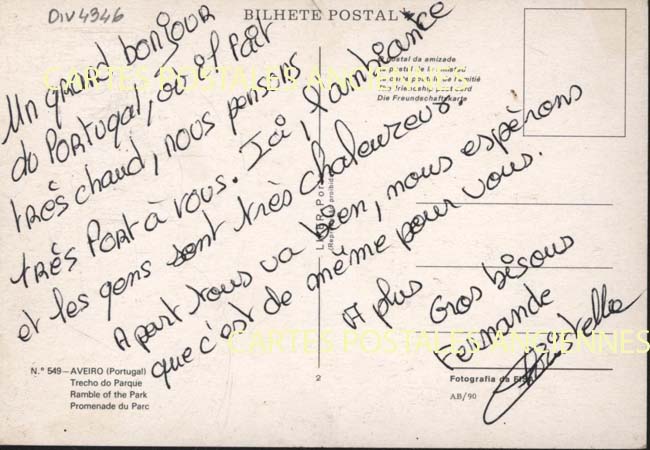 Div 4346
BILHETE POSTAL
Un grand bonjour
du Portugal, où il fait
très chaud, nous pensons
très fort à vous. Ici, l'ambiance
et les gens sont très chaleureux.
A part tous va bien, nous espérons
que c'est de même pour vous.
A plus
Gros bisous
Fernande
postal da amizade
postale de l'amitié
The friendship postcard
Die Freundschaftskarte
CARTES POSTALES ANCIENNES
CARTES POSTALES ANCIENNES
N.º 549 — AVEIRO (Portugal)
Trecho do Parque
Ramble of the Park
Promenade du Parc
2
Fotografia da
AB/90